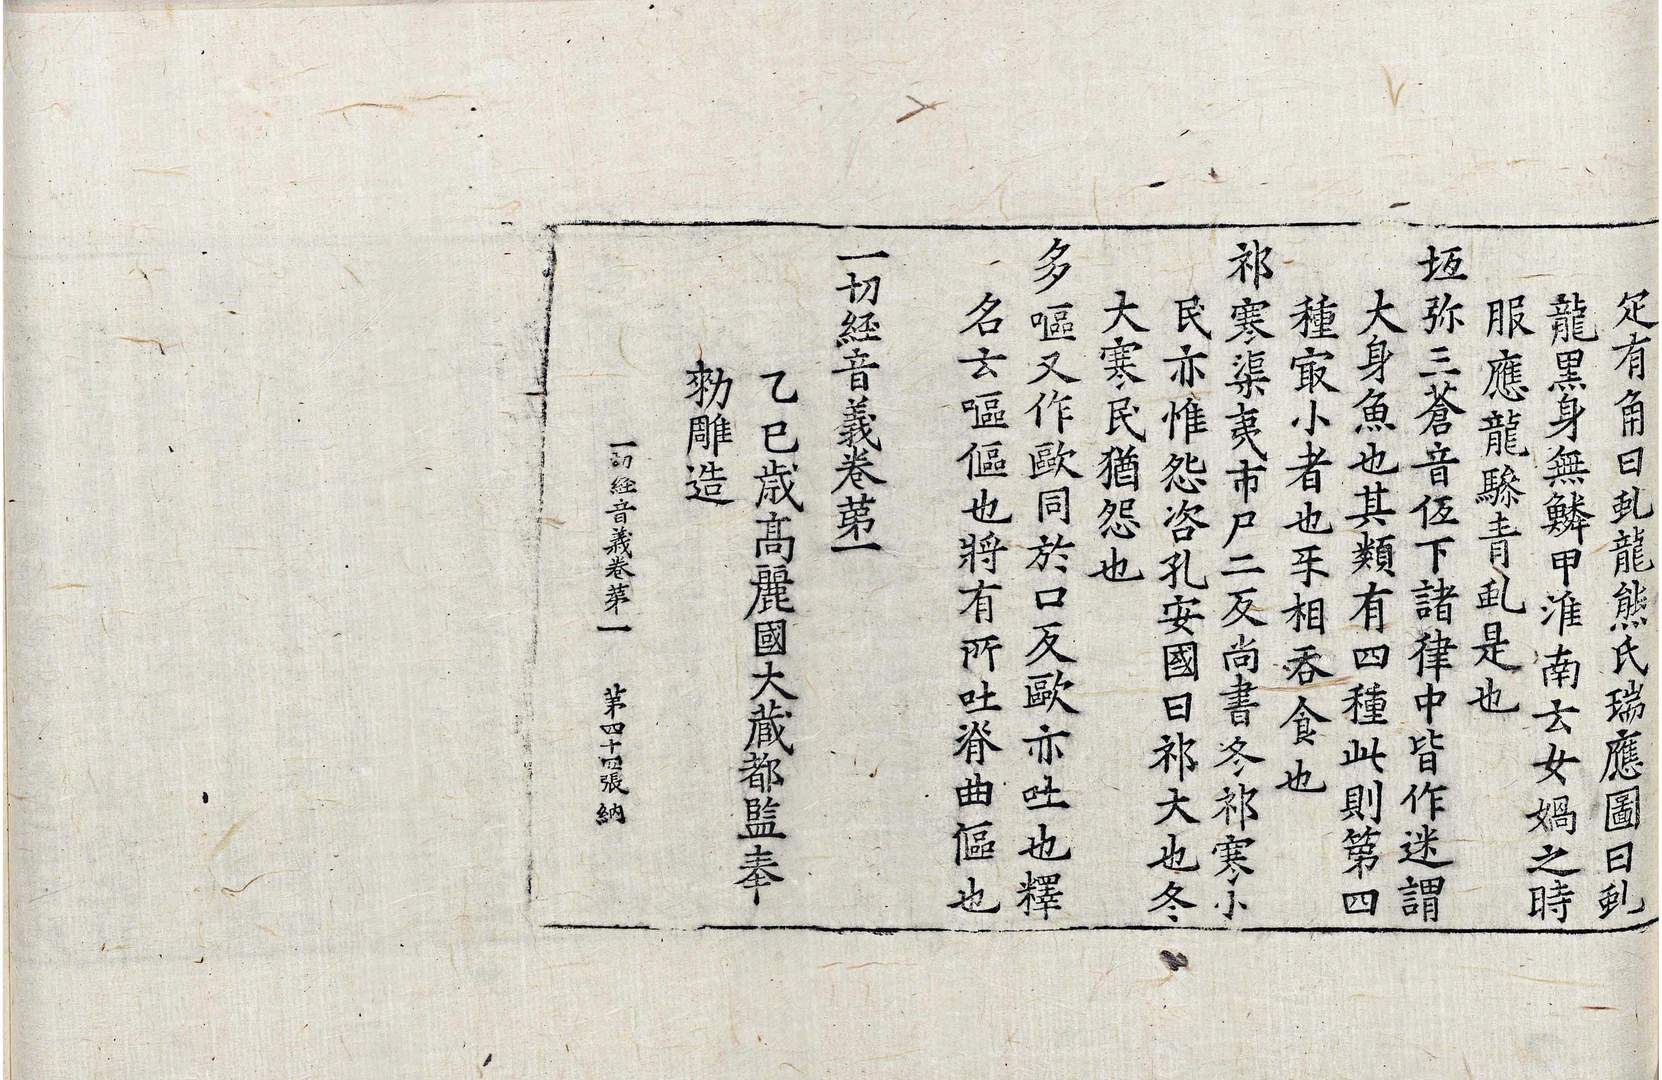 足有角曰虬龍熊氏瑞應圖曰虬
龍黒身無鱗甲淮南玄女媧之時
服應龍驂青虬是也
坘弥三蒼音低下諸律中皆作迷謂
大身魚也其類有四種此則第四
種㝡小者也㸦相呑食也
祁寒渠夷市尸二反尚書冬祁寒小
民亦惟怨咨孔安國曰祁大也冬
大寒民猶怨也
多嘔又作歐同於口反歐亦吐也釋
名云嘔傴也將有所吐脊曲傴也
一切經音義卷苐一
乙巳歳髙麗國大蔵都監奉
勑雕造
一切經音義卷苐一 苐四十四張 納